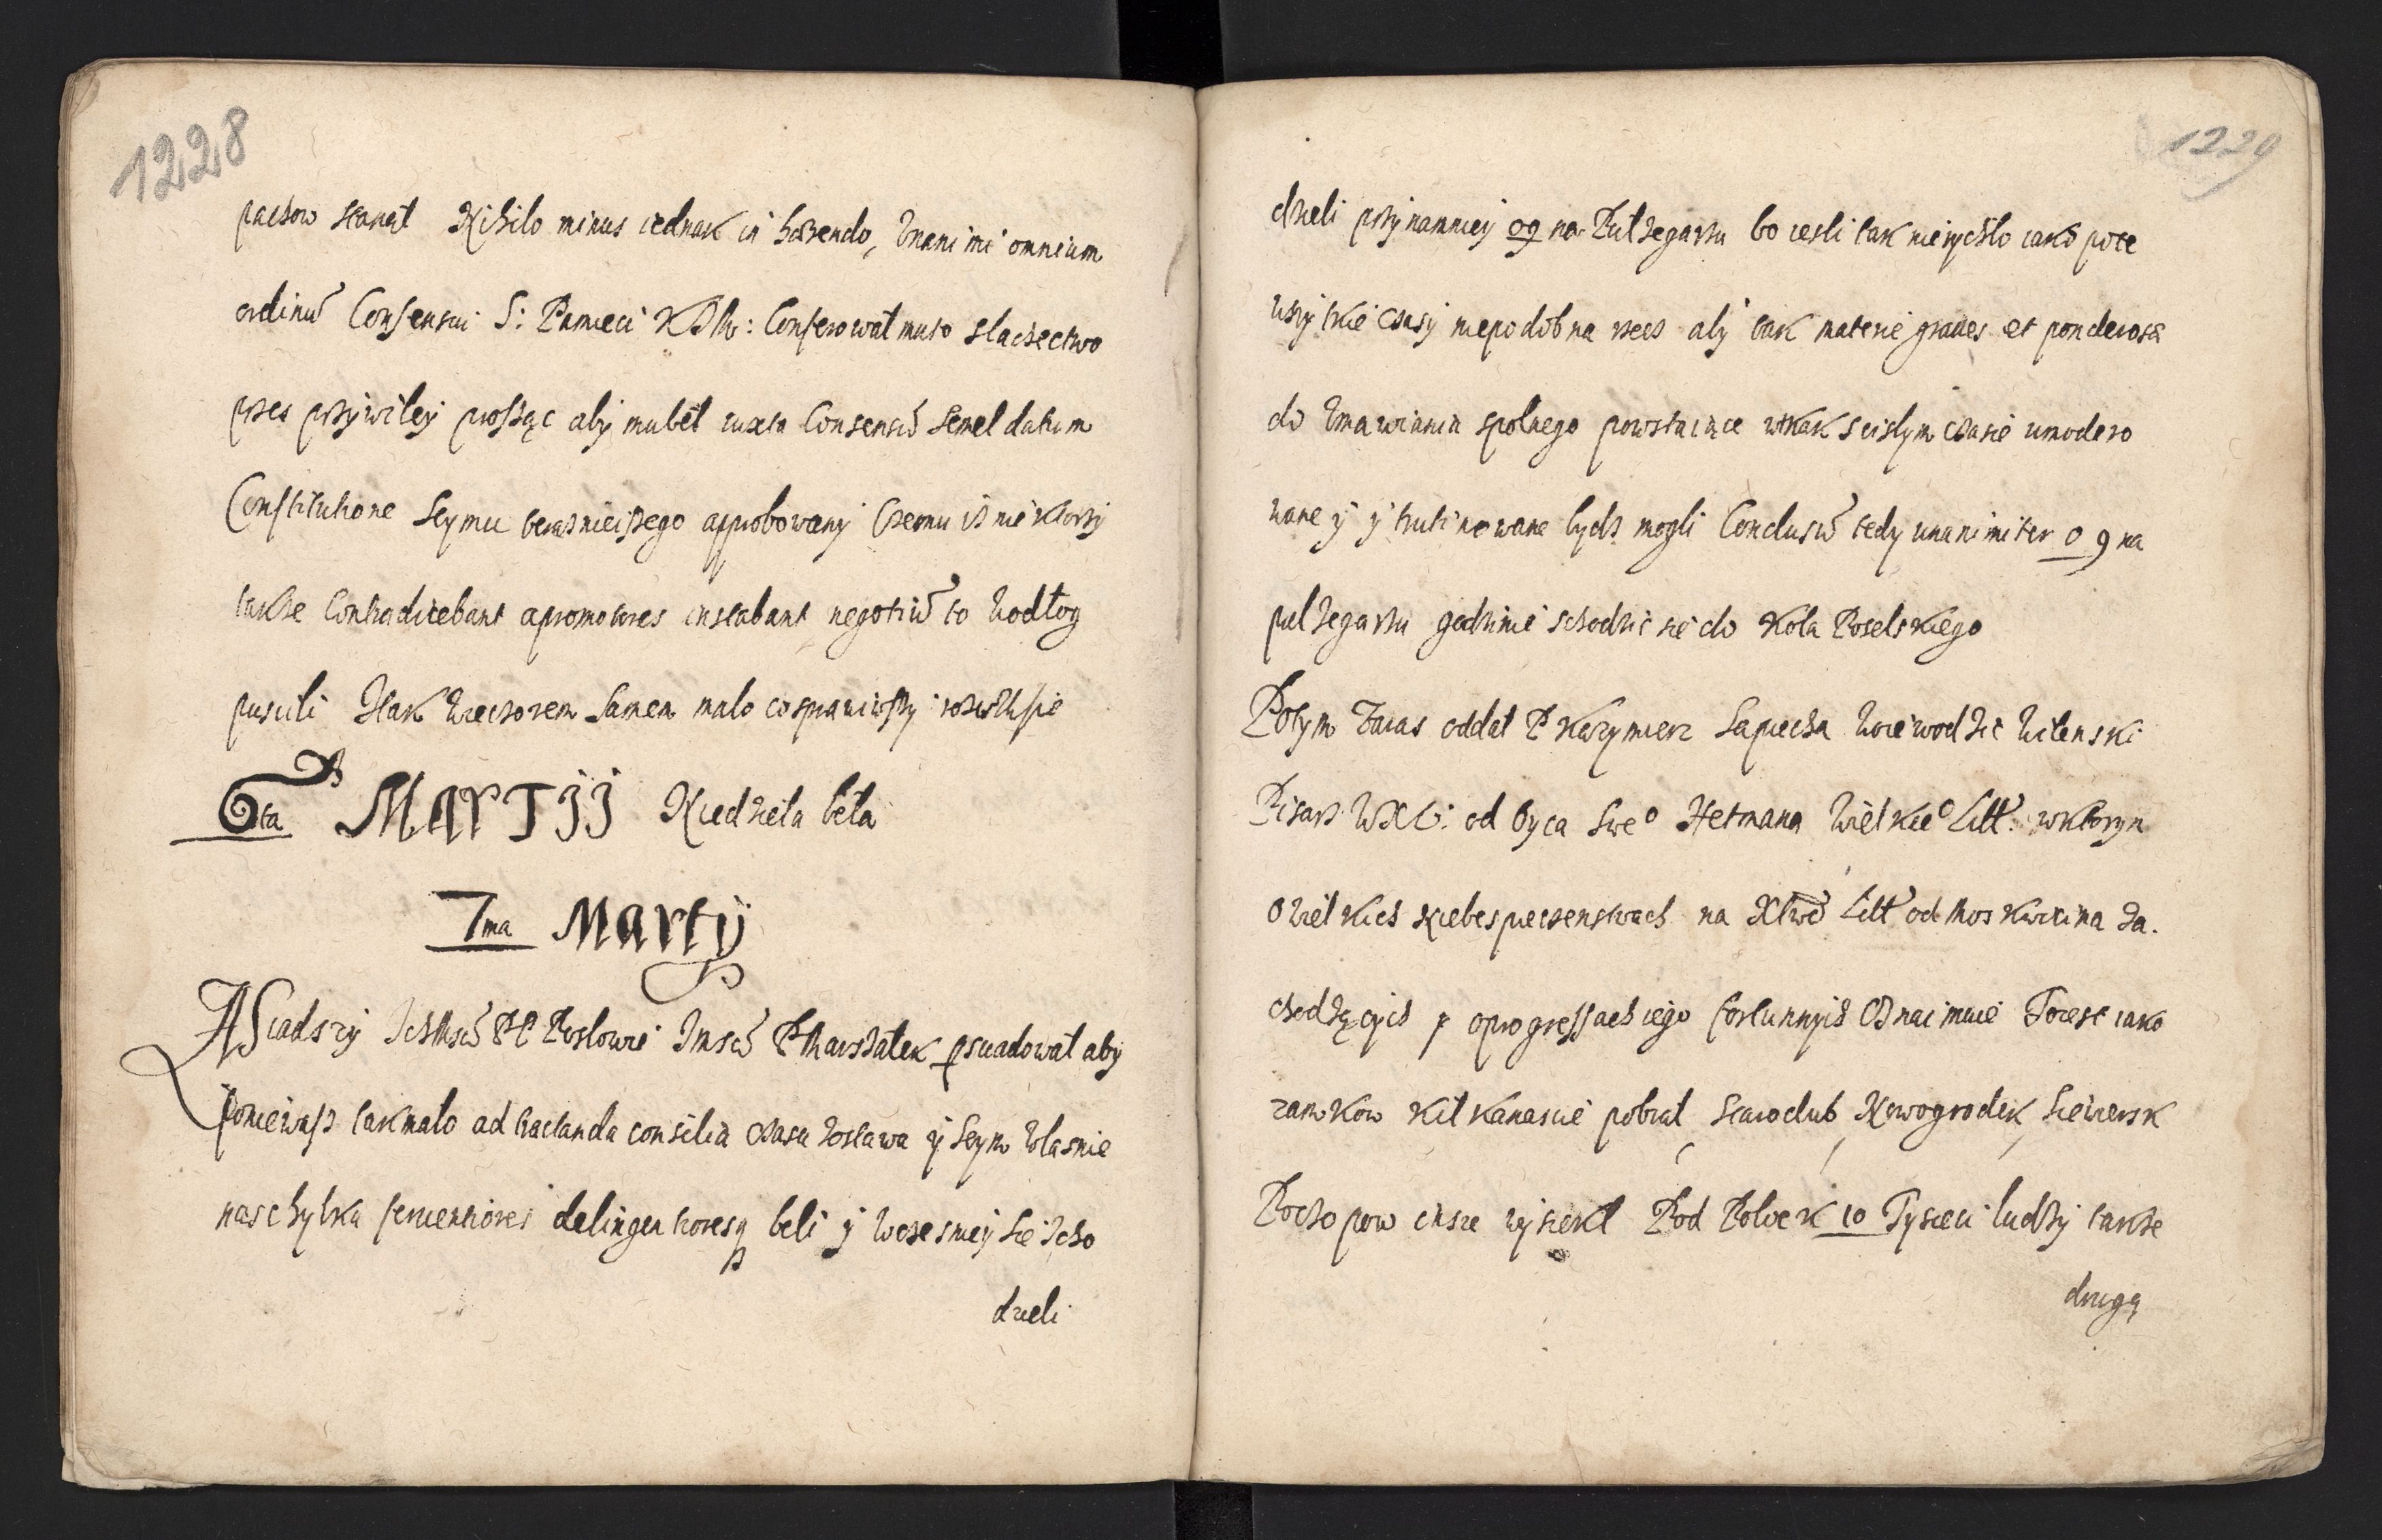 1228
pachow stanął Nihilo minus iednak in haerendo, Unanimi omnium
ordinũ Consensui S: Pamieci KJM: Conferował mu to slachectwo
przes przywiley prosząc aby mu bel iuxta Consensũ semel datum
Constitutione Seymu terasnieiszego approbowany Czemu isz niektorzy
także Contradicebant a promotores instabant negotiũ to w odłog
puscili Itak wieczorem Samem mało co sprawiwszy rozeszli sie
6ta MARTII Niedziela beła
7ma Martij
ASiadszy Ichmsciũ PP Posłowie Jmsciũ P Marszałek psuadował aby
poniewasz tak mało ad tractanda consilia czasu zostawa y Seym własnie
na schyłku ferventiores delingentioresq beli y wczesniey sie scho
dzieli
1229
dzieli przynamniey o 9 na Puł Zegarzu bo iesli tak nierychło iako po te
wszytkie czasy niepodobna rzecz aby tak materie graues et ponderosae
do Umawiania spolnego powstaiące w tak scisłym czasie umodero
wane y ytrutinowane bydz mogli Conclusũ tedy unanimiter o 9 na
puł zegarzu godzinie schodzic sie do Koła Poselskiego
Potym zaras oddał P Kazymierz Sapieha Woiewodzic Wilenski
Pisarz WXL: od Oyca Sweo Hetmana Wielkieo Litt: w ktorym
o wielkich niebespieczenstwach na Xtwo Litt od Moskwicina za.
chodzących y o progressach iego fortunnych Oznaimuie To iest iako
zamkow kilkanascie pobrał Starodub, Nowogrodek, Siewiersk
Poczopow insze wysiekł Pod Połock 10 Tysieci ludzy także
drugą